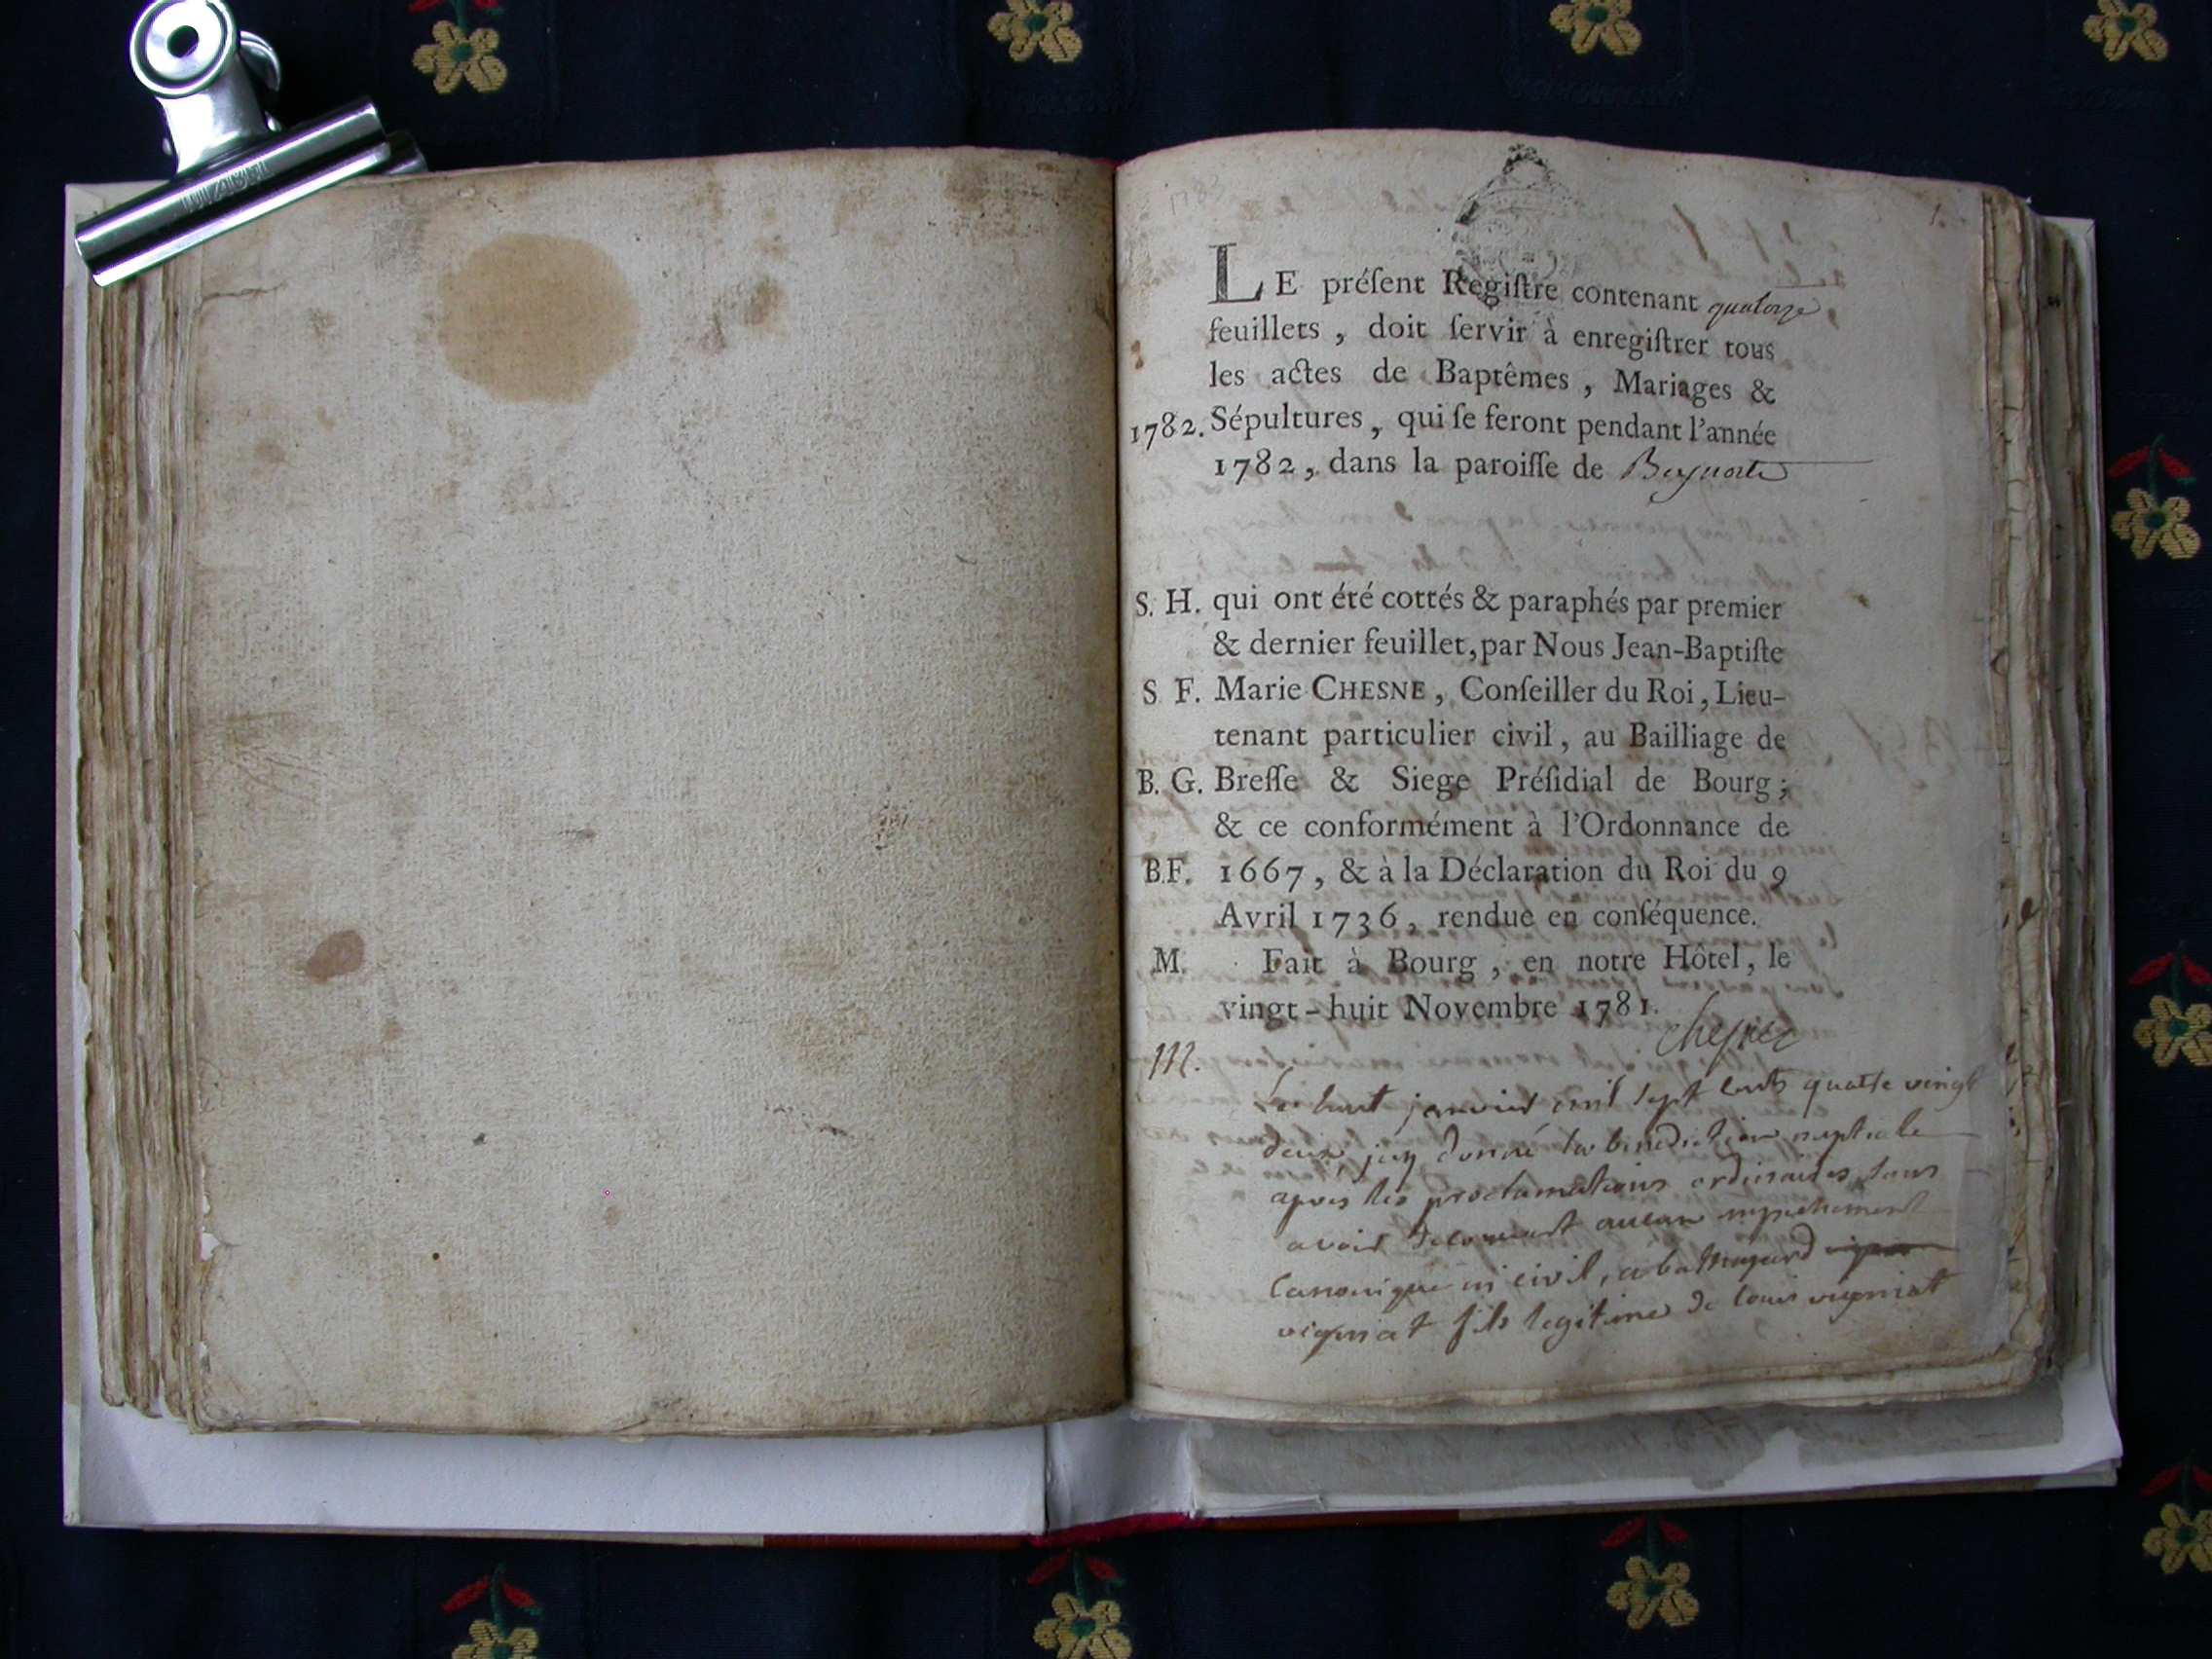 1.
LE préſent Regiſtre contenant quatorze
feuillets, doit ſervir à enregiſtrer tous
les actes de Baptêmes, Mariages &
1782. Sépultures, qui ſe feront pendant l'année
1782, dans la paroiſſe de
S. H. qui ont été cottés & paraphés par premier
& dernier feuillet, par Nous Jean-Baptiſte
S F. Marie CHESNE, Conſeiller du Roi, Lieu-
tenant particulier civil, au Bailliage de
B. G. Breſſe & Siege Préſidial de Bourg;
& ce conformément à l'Ordonnance de
B.F. 1667, & à la Déclaration du Roi du 9
Avril 1736, rendue en conſéquence.
M. Fait à Bourg, en notre Hôtel, le
vingt-huit Novembre 1781.
chesne
M.
Le huit janvier mil sept cents quatre vingt
deux, jay donné la benediction nuptiale
apres les proclamations ordinaires, sans
avoir decouvert aucun
canonique ni civil, a
vigniat fils legitime de louis vigniat